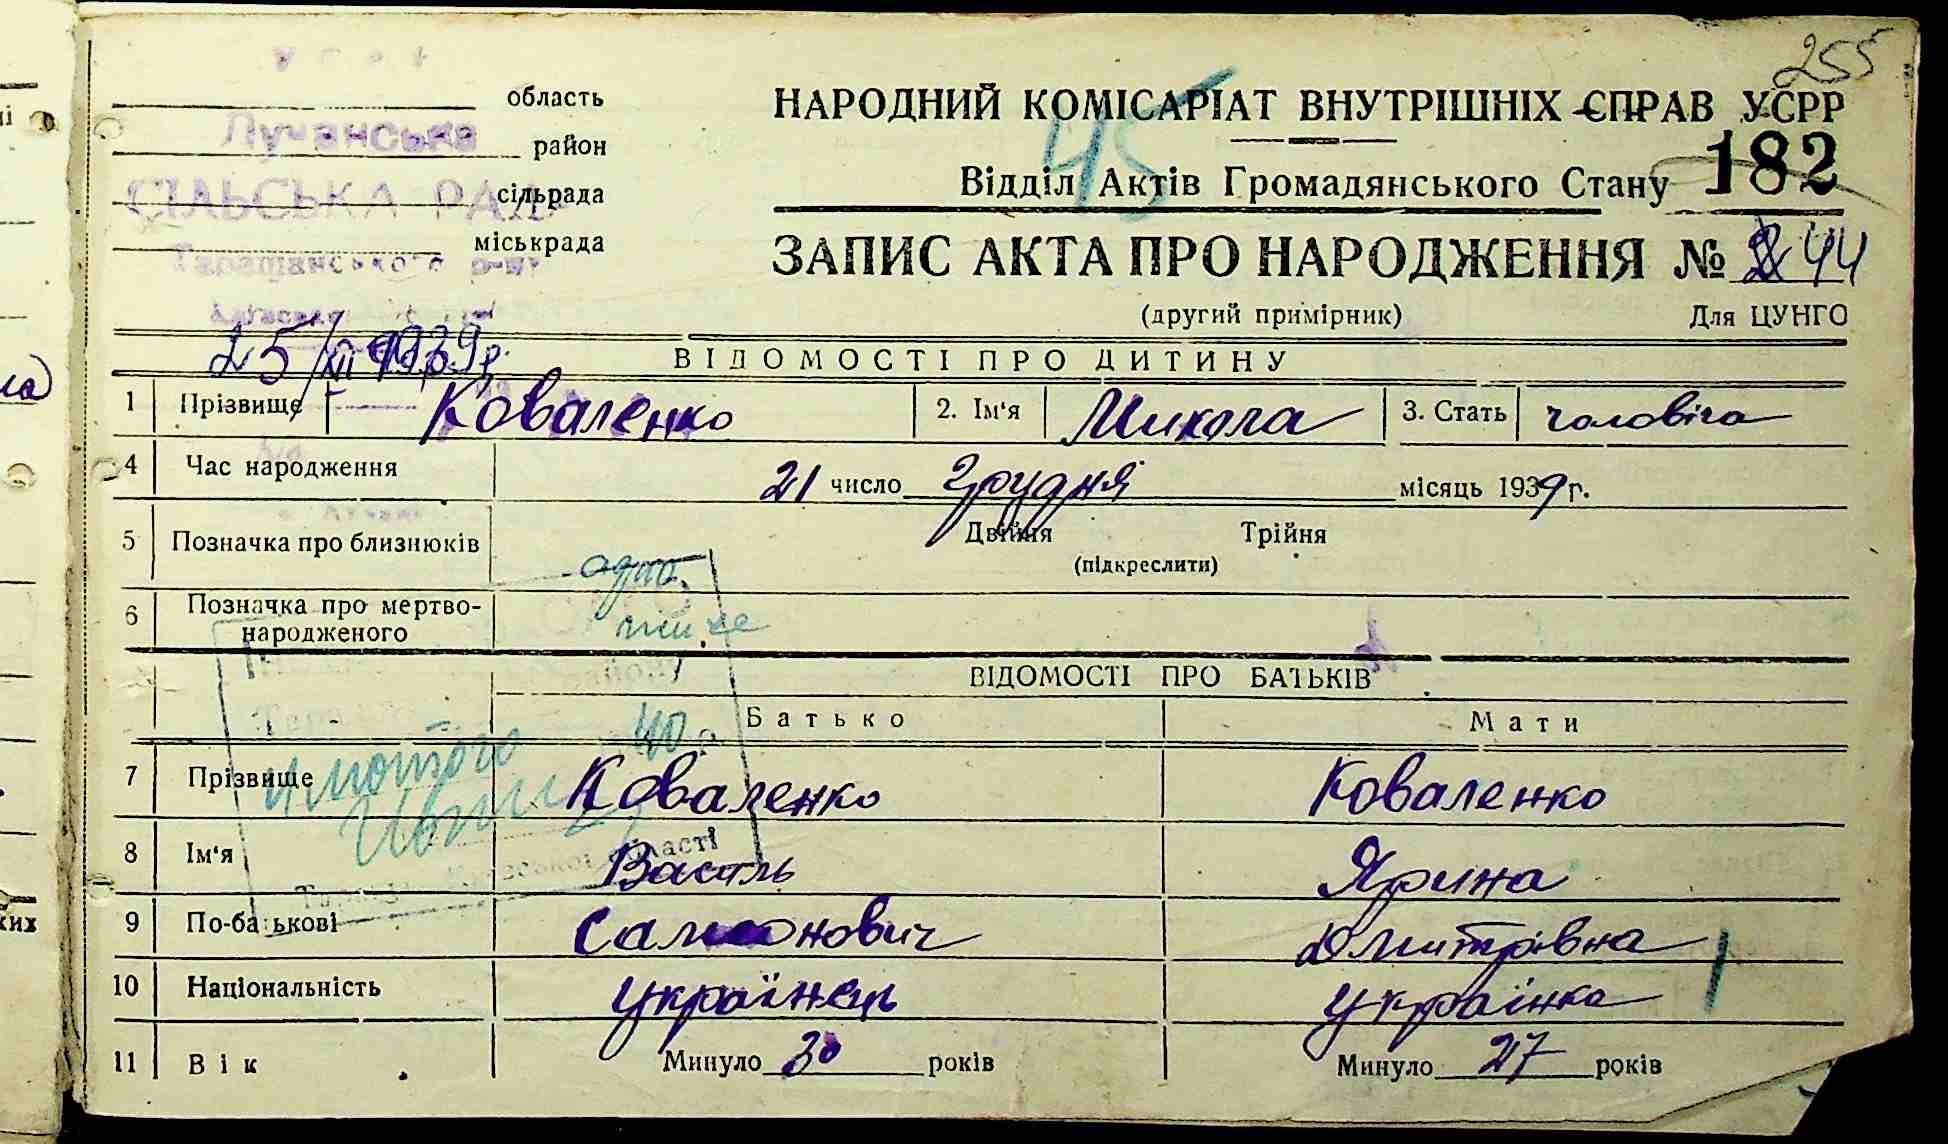 255
область
НАРОДНИЙ КОМІСАРІАТ ВНУТРІШНІХ СПРАВ УСРР
45
Лучанська
район
Відділ Актів Громадянського Стану 182
СІЛЬСЬКА РАДА
сільрада
міськрада
Таращанського р-ну
ЗАПИС АКТА ПРО НАРОДЖЕННЯ № 244
(другий примірник) Для ЦУНГО
25/XII 1939р.
ВІДОМОСТІ ПРО ДИТИНУ
1 Прізвище Коваленко 2. Ім'я Микола 3. Стать чоловіча
4 Час народження 21 число Грудня місяць 1939 г.
5 Позначка про близнюків Двійня Трійня
(підкреслити)
одно
6 Позначка про мертво-
народженого
живе
ВІДОМОСТІ ПРО БАТЬКІВ
Батько Мати
лютого 40
7 Прізвище Коваленко Коваленко
8 Ім'я Василь Ярина
області
9 По-батькові Самсонович Дмитрівна
10 Національність українець українка
11 Вік Минуло 30 років Минуло 27 років